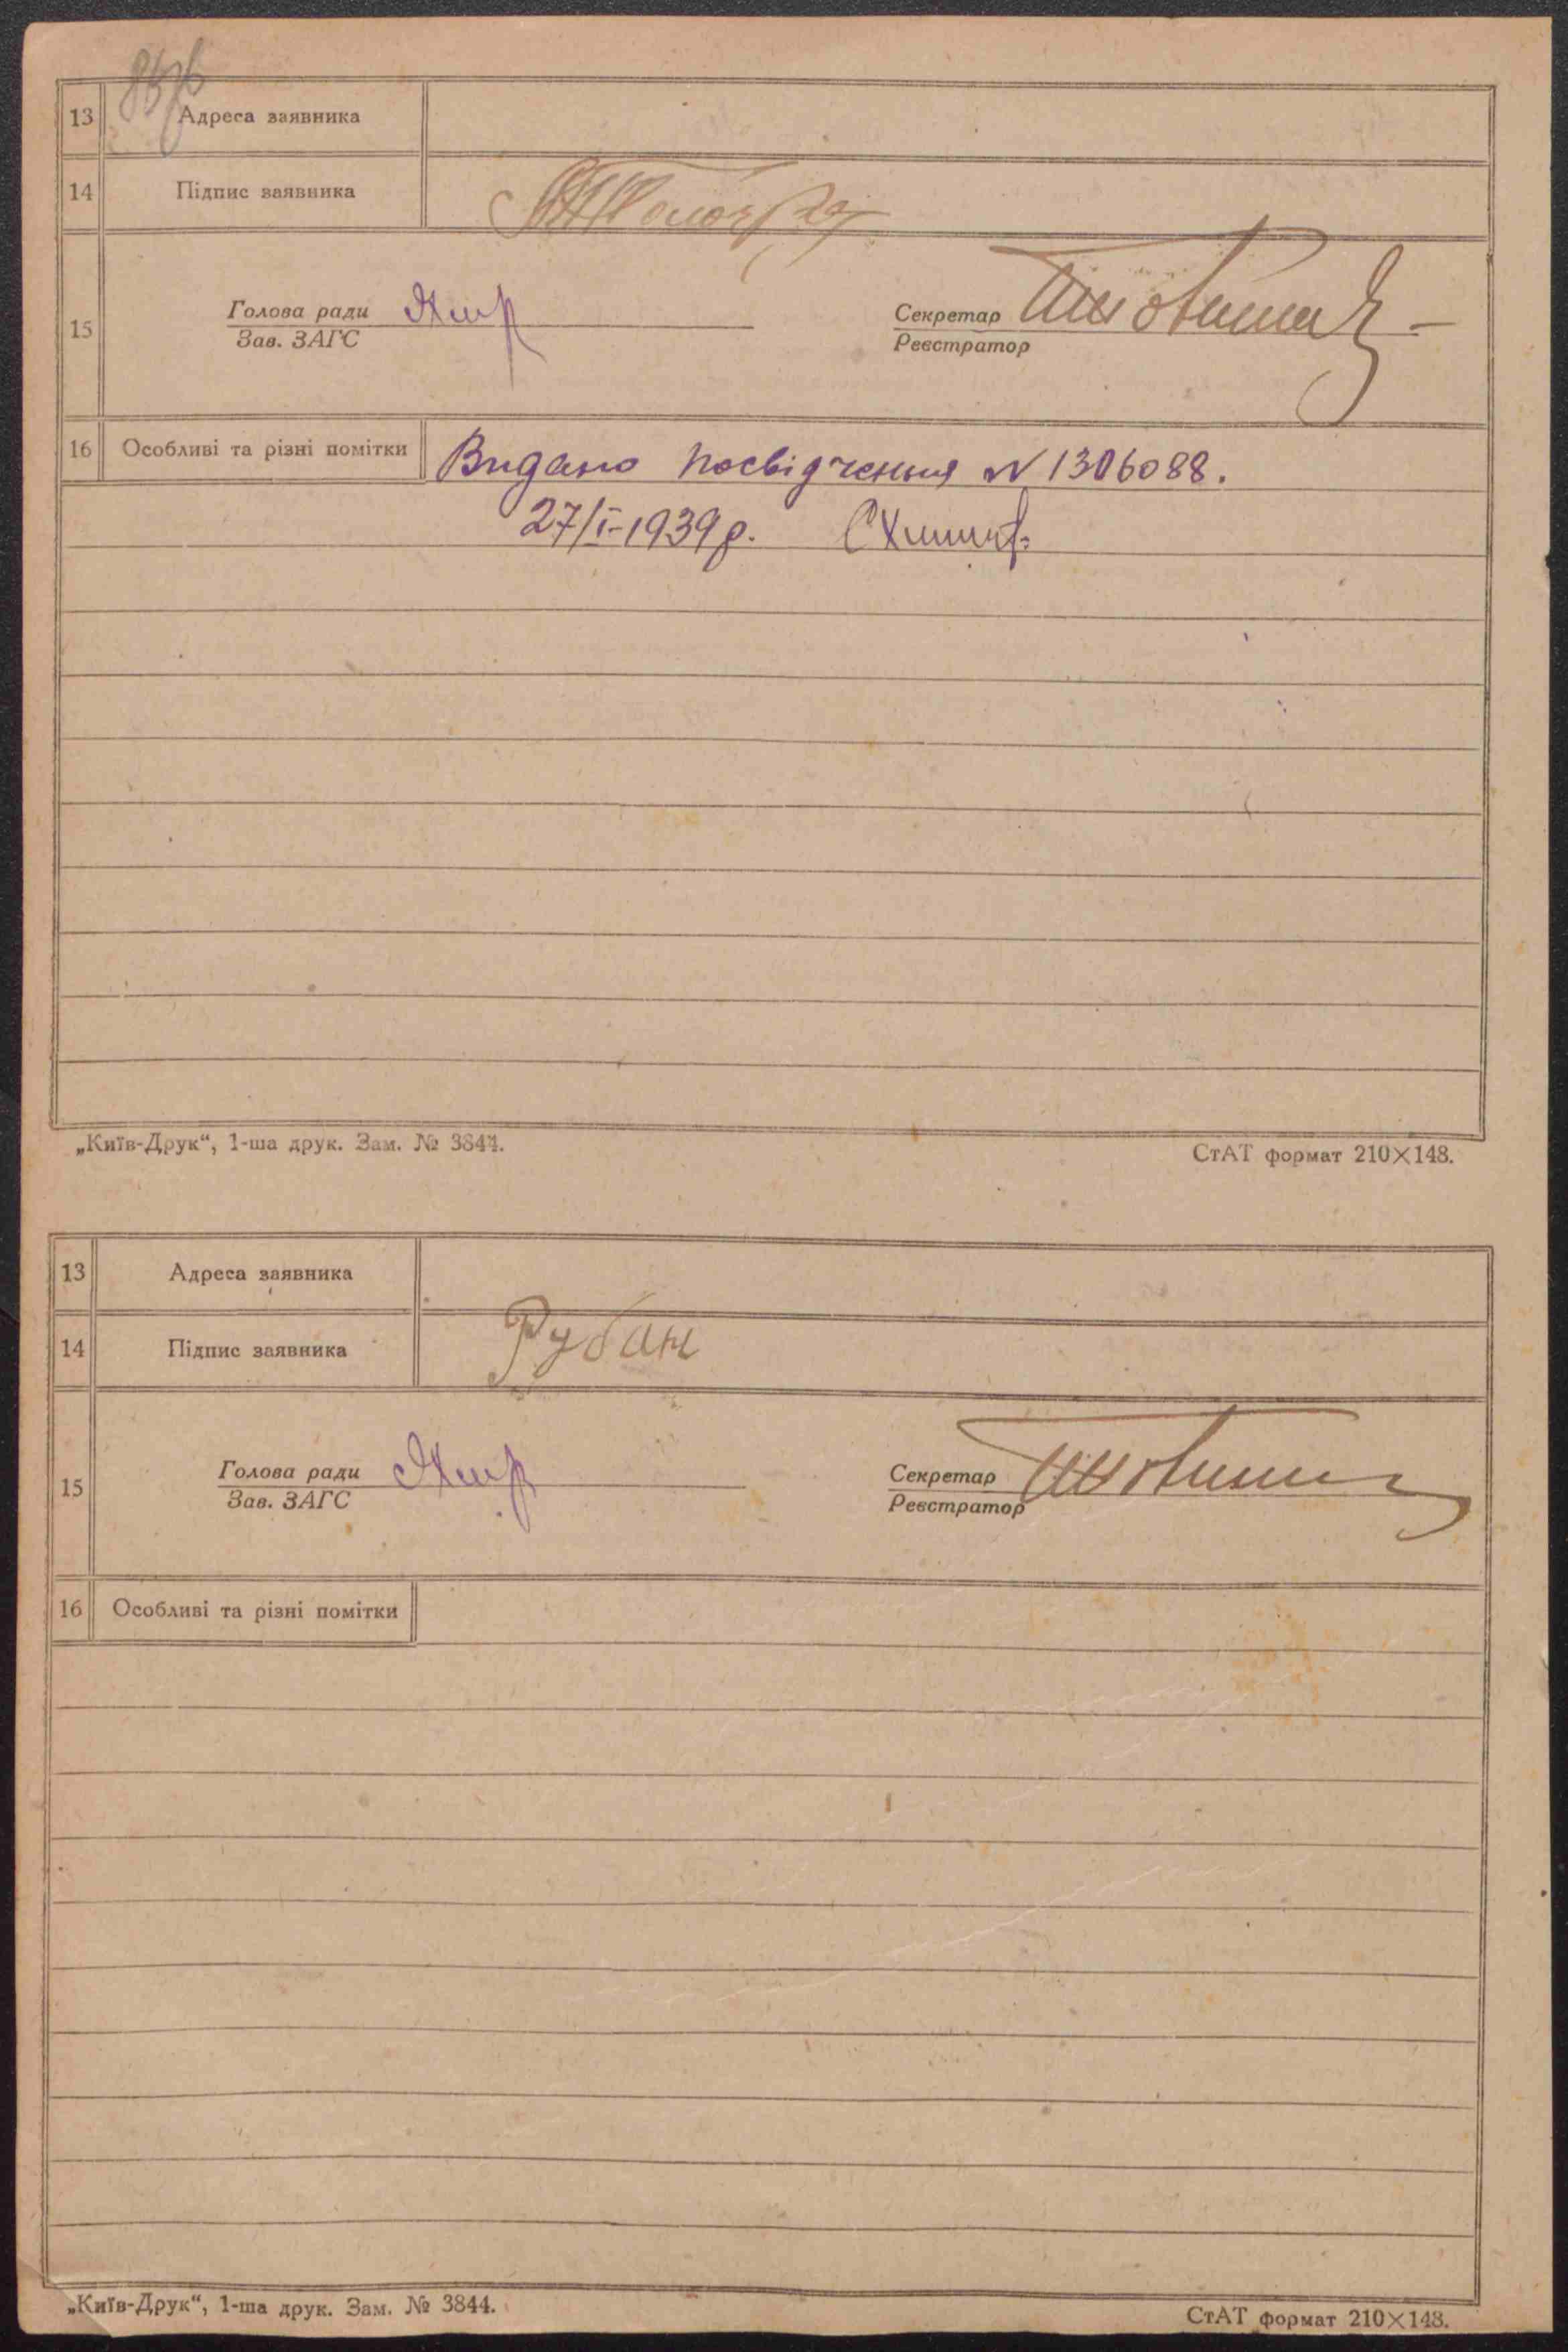 13 Адреса заявника
14 Підпис заявника
15 Голова ради Секретар
Зав. ЗАГС Реєстратор
16 Особливі та різні помітки Видано посвідчення N 1306088.
27/I-1939 р.
„Київ-Друк“, 1-ша друк. Зам. № 3844. СтАТ формат 210×148.
13 Адреса заявника
14 Підпис заявника Рубан
15 Голова ради Секретар
Зав. ЗАГС Реєстратор
16 Особливі та різні помітки
„Київ-Друк“, 1-ша друк. Зам. № 3844. СтАТ формат 210×148.